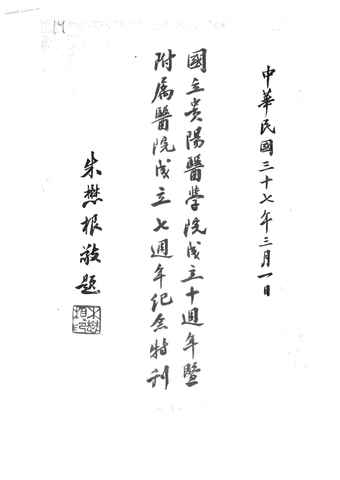 中華民國三十七年三月一日
國立貴陽醫學院成立十週年暨
附属醫院成立七週年紀念特刊
朱懋根敬題
14